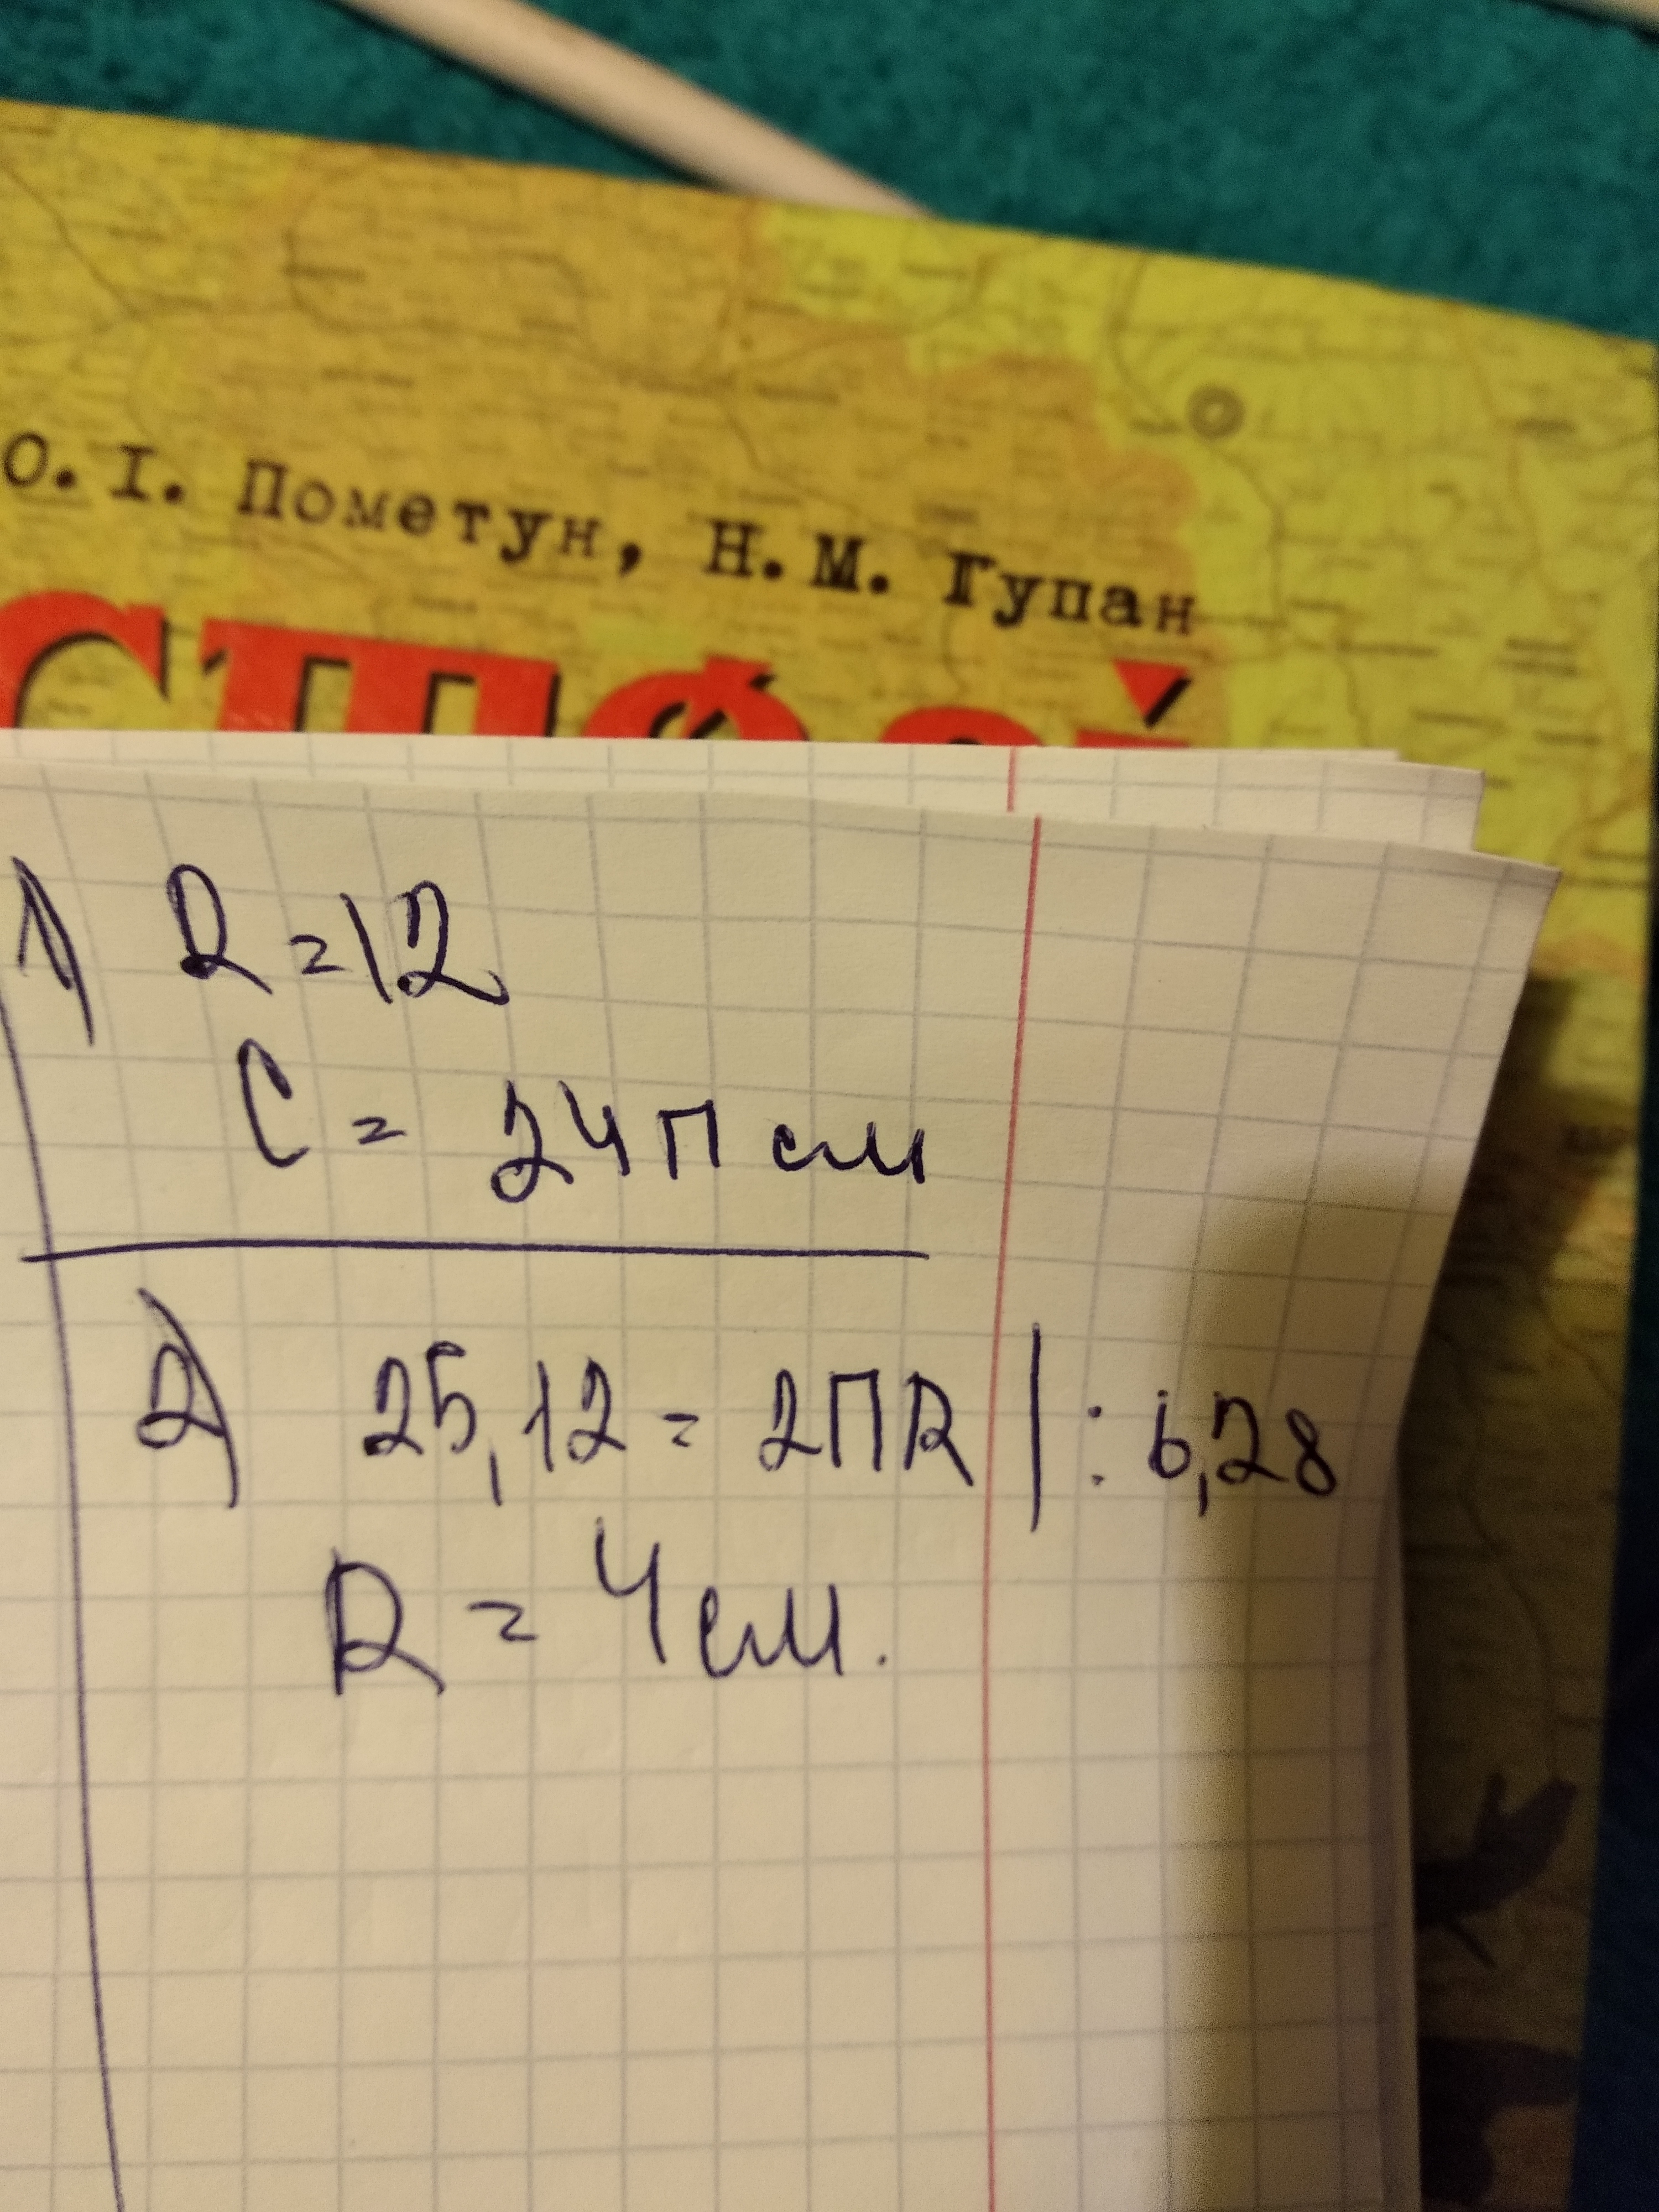 О. І. Пометун, Н. М. Гупан
1) R = 12
C = 24П см
2) 25,12 = 2ПR | : 6,28
R = 4 см.